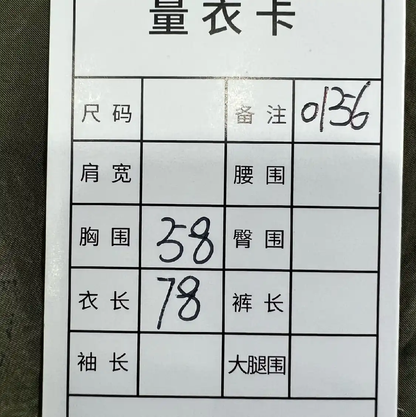 量衣卡
尺码 备注 0136
肩宽 腰围
胸围 58 臀围
衣长 78 裤长
袖长 大腿围